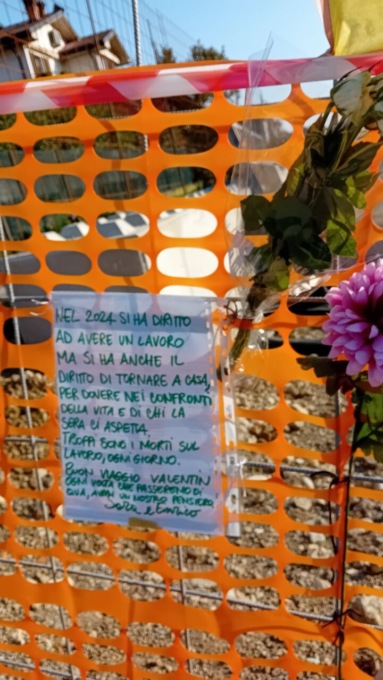 NEL 2024 SI HA DIRITTO
AD AVERE UN LAVORO
MA SI HA ANCHE IL
DIRITTO DI TORNARE A CASA,
PER DOVERE NEI CONFRONTI
DELLA VITA E DI CHI LA
SERA CI ASPETTA.
TROPPI SONO I MORTI SUL
LAVORO, OGNI GIORNO.
BUON VIAGGIO VALENTIN
OGNI VOLTA CHE PASSEREMO DI
QUA, AVRAI UN NOSTRO PENSIERO